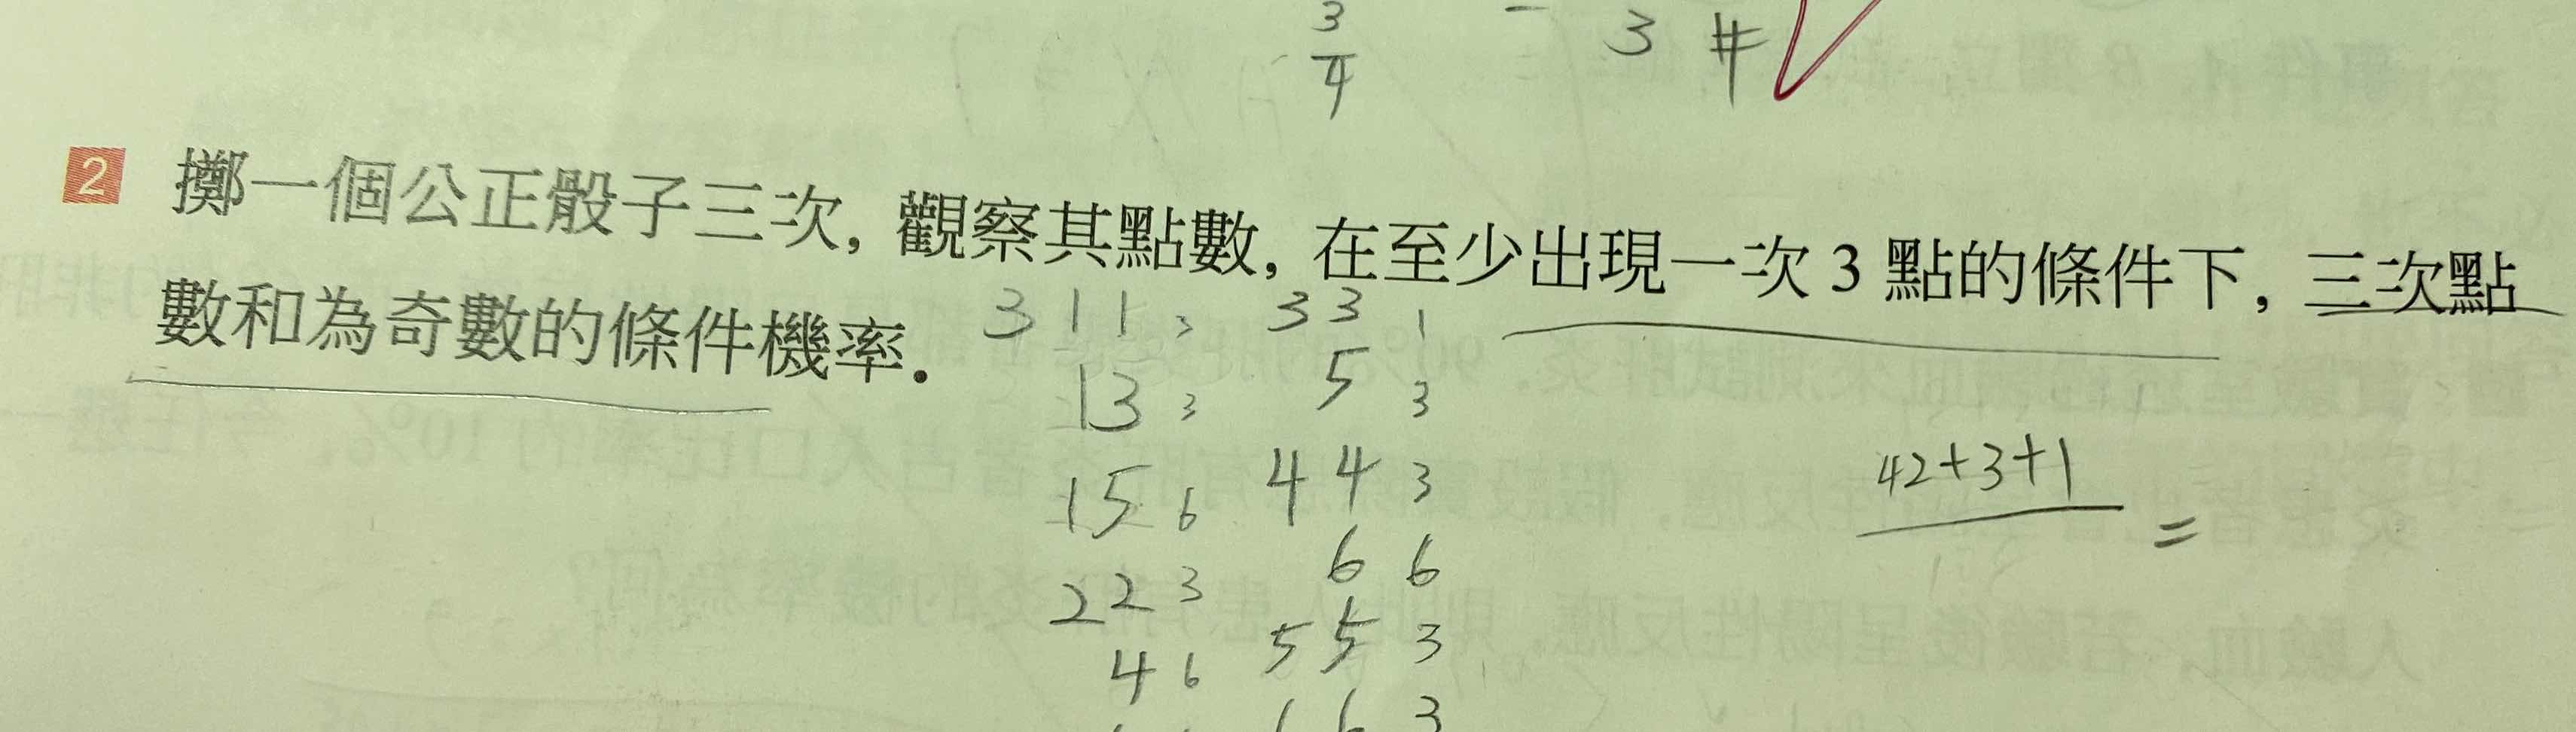 3
4
- 3 #
2 擲一個公正骰子三次, 觀察其點數, 在至少出現一次 3 點的條件下, 三次點
數和為奇數的條件機率.
3 1 1 3 3 3 1
1 3 3 5 3
1 5 6 4 4 3
2 2 3 6 6
4 6 5 5 3
6 3
42+3+1
=